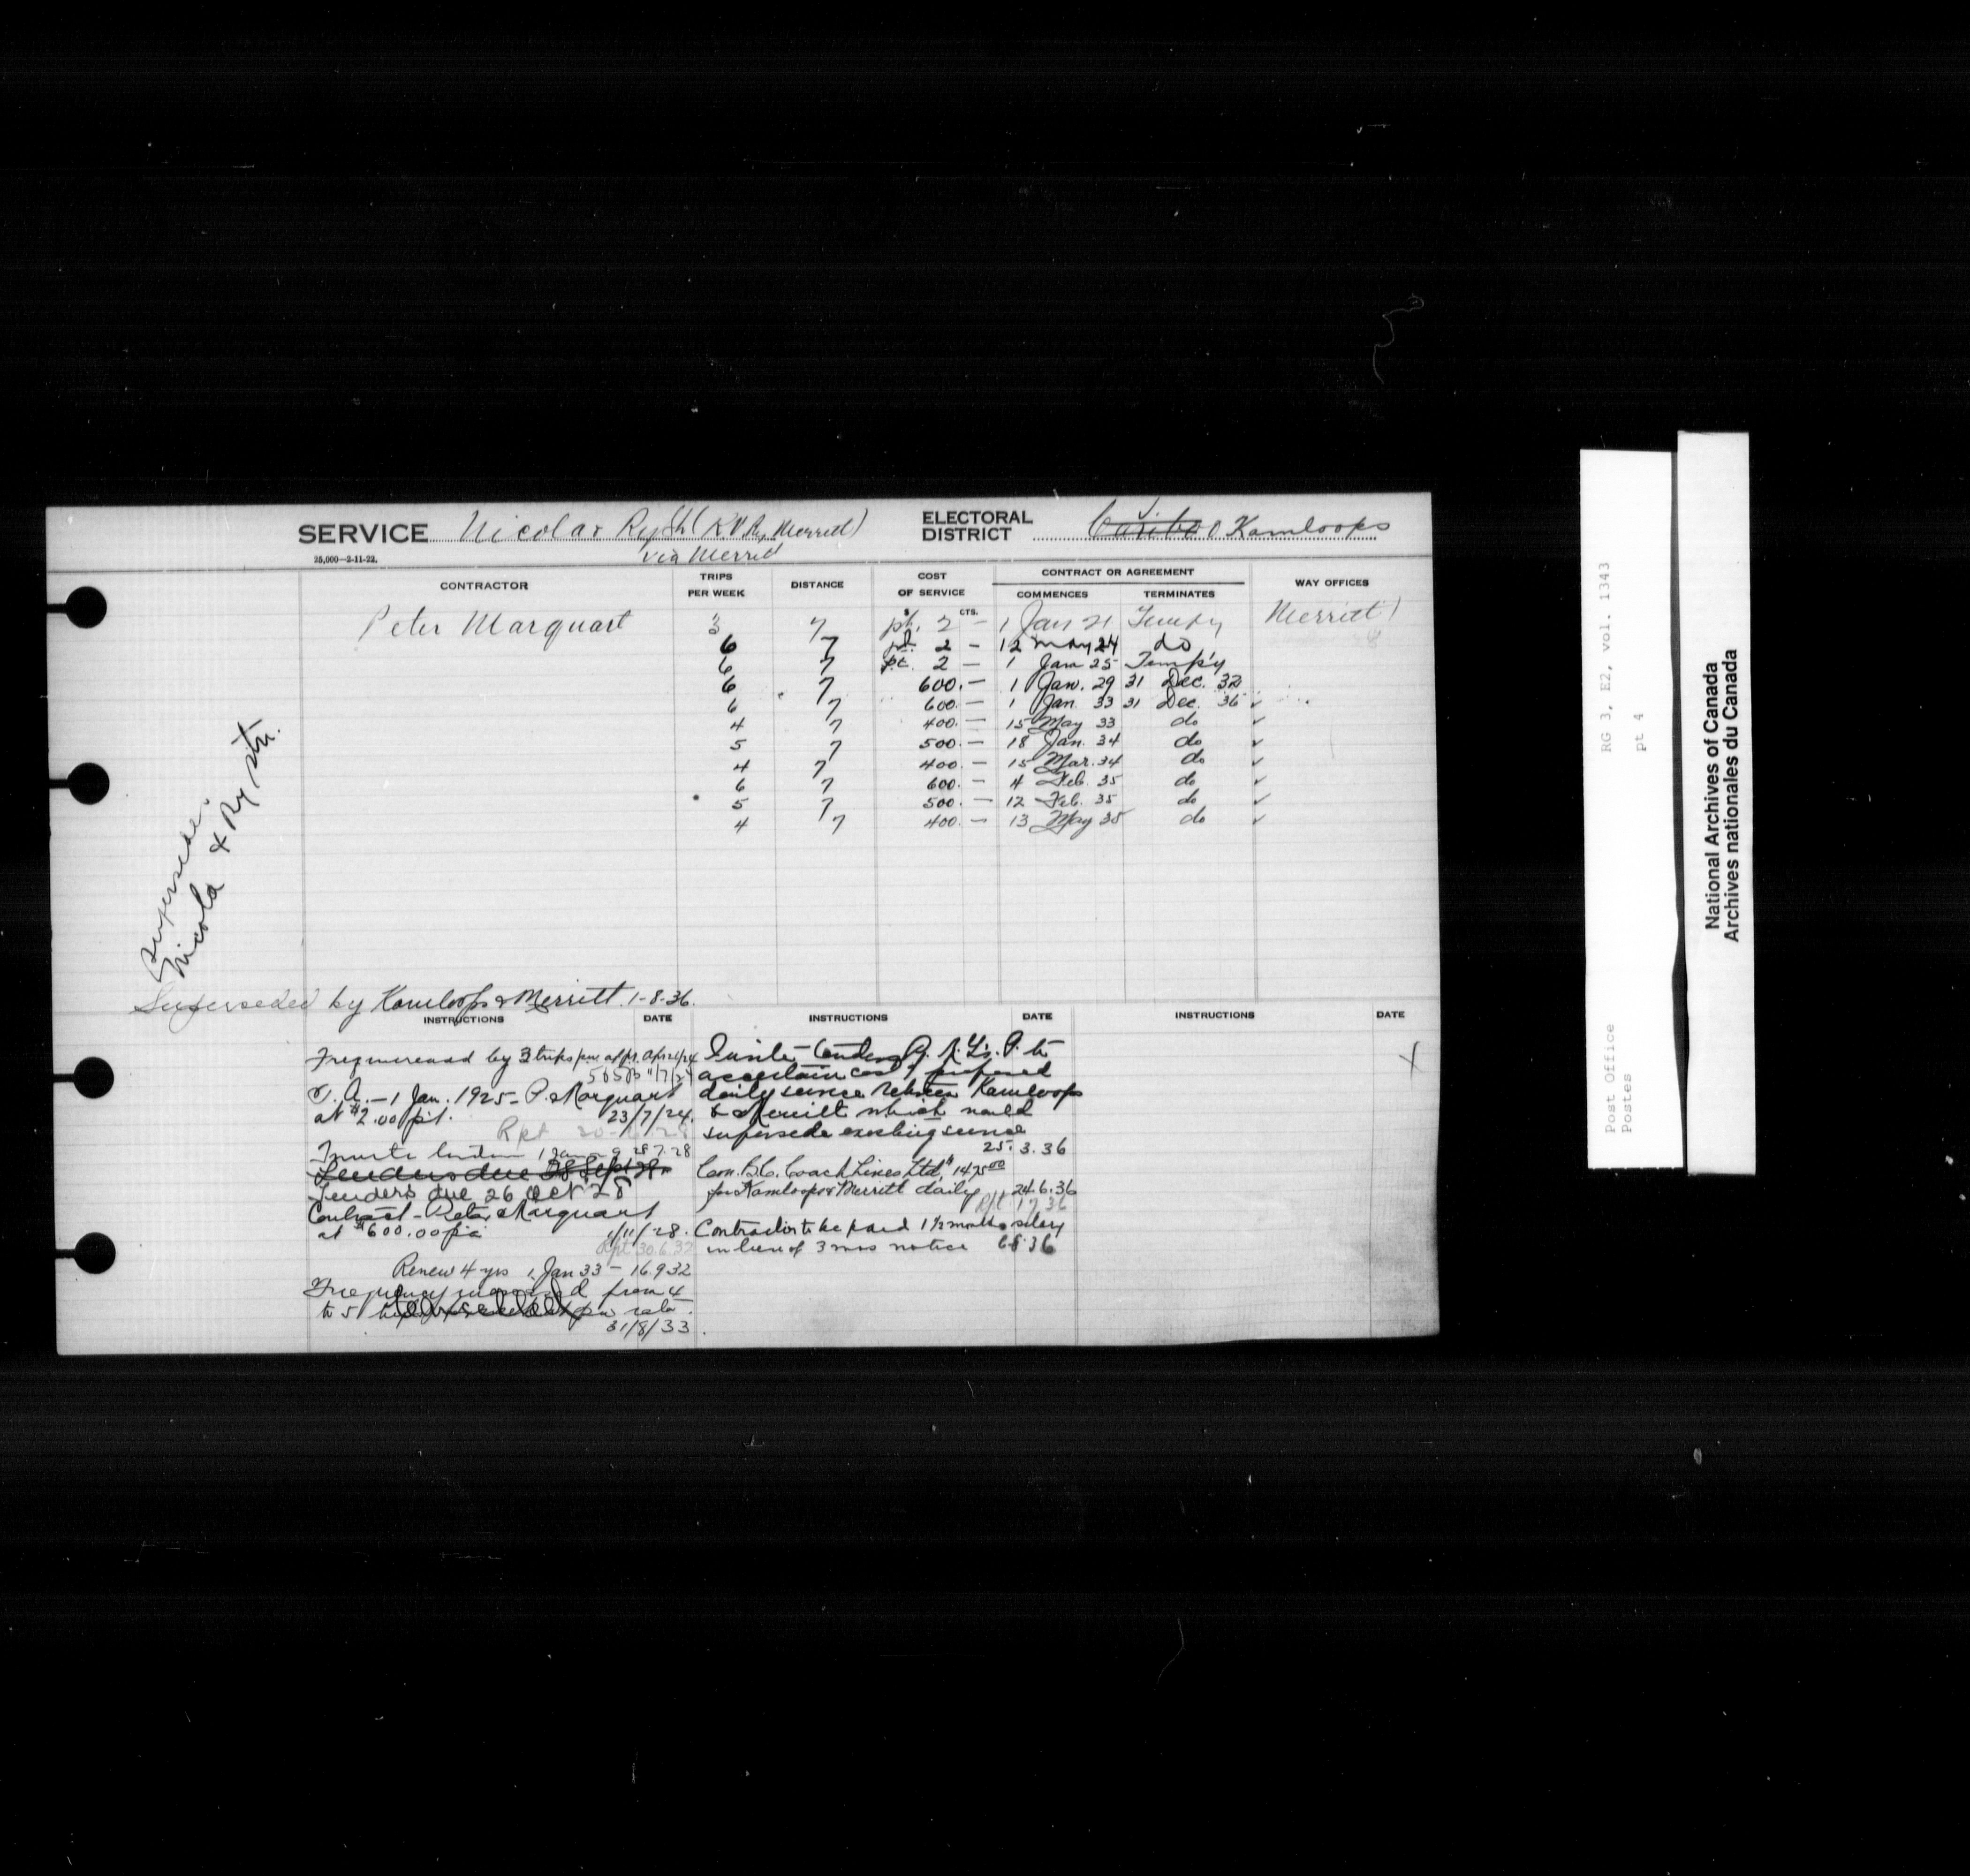 SERVICE Nicola & Ry Stn (K V Ry Merritt)
via Merritt
25,000—2-11-22.
ELECTORAL DISTRICT Cariboo Kamloops
CONTRACTOR TRIPS PER WEEK DISTANCE COST OF SERVICE CONTRACT OR AGREEMENT COMMENCES TERMINATES WAY OFFICES
$ CTS.
Peter Marquart 3 7 pt. 2 — 1 Jan 21 Tempy Merritt
6 7 pt. 2 — 12 May 24 do
6 7 pt. 2 — 1 Jan 25 Temp'y
6 7 600.— 1 Jan. 29 31 Dec. 32
6 7 600.— 1 Jan. 33 31 Dec. 36 ✓
4 7 400.— 15 May 33 do ✓
5 7 500.— 18 Jan. 34 do ✓
4 7 400.— 15 Mar. 34 do ✓
6 7 600.— 4 Feb. 35 do ✓
5 7 500.— 12 Feb. 35 do ✓
4 7 400.— 13 May 35 do ✓
Supersede.
Nicola & Ry stn.
Superseded by Kamloops & Merritt 1-8-36.
INSTRUCTIONS DATE
Freq increased by 3 trips
T. A. — 1 Jan. 1925 — P. Marquart
at $2.00 p.t. 23/7/24.
Rpt
Invite tenders 1 Jan 28.7.28
Tenders due 28 Sept 28
Tenders due 26 Oct 28
Contract — Peter Marquart
at $600.00 p.a. /11/28.
Rpt 30.6.32
Renew 4 yrs 1 Jan 33 — 16.9.32
Frequency increased from 4
to 5 cancelled rata.
31/8/33.
INSTRUCTIONS DATE
Invite tenders to
ascertain cost of proposed
daily service between Kamloops
& Merritt which would
supersede existing service
25.3.36
Con. B.C. Coach Lines Ltd. $1475.00
for Kamloops & Merritt daily 24.6.36
Rpt. 1 7 36
Contractor to be paid 1½ months salary
in lieu of 3 mos notice 6 8 36
INSTRUCTIONS DATE
X
Post Office RG 3, E2, vol. 1343
Postes pt 4
National Archives of Canada
Archives nationales du Canada